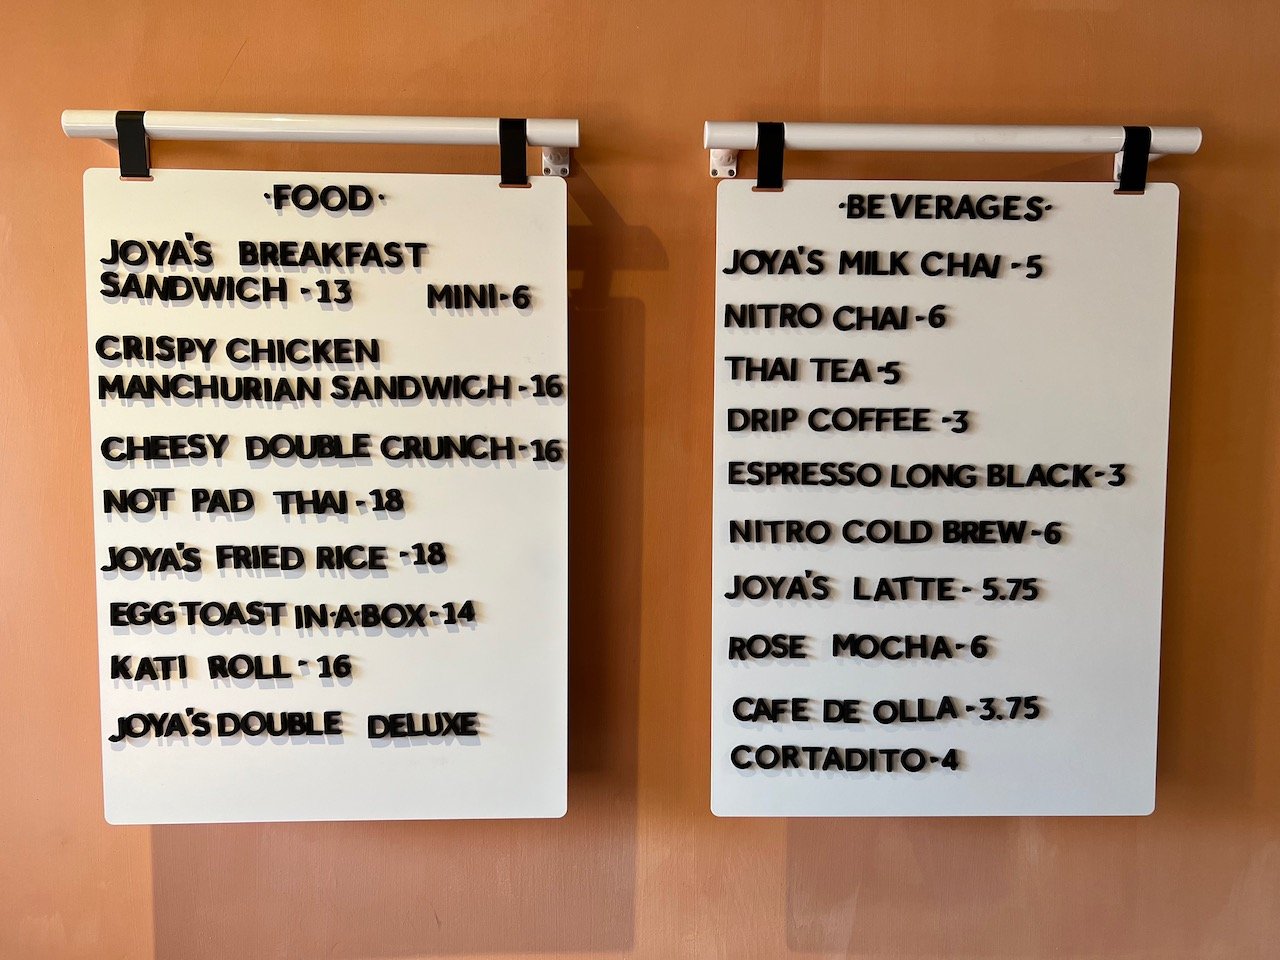 ·FOOD·
JOYA'S BREAKFAST
SANDWICH - 13 MINI - 6
CRISPY CHICKEN
MANCHURIAN SANDWICH - 16
CHEESY DOUBLE CRUNCH - 16
NOT PAD THAI - 18
JOYA'S FRIED RICE - 18
EGG TOAST IN-A-BOX - 14
KATI ROLL - 16
JOYA'S DOUBLE DELUXE
·BEVERAGES·
JOYA'S MILK CHAI - 5
NITRO CHAI - 6
THAI TEA - 5
DRIP COFFEE - 3
ESPRESSO LONG BLACK - 3
NITRO COLD BREW - 6
JOYA'S LATTE - 5.75
ROSE MOCHA - 6
CAFE DE OLLA - 3.75
CORTADITO - 4